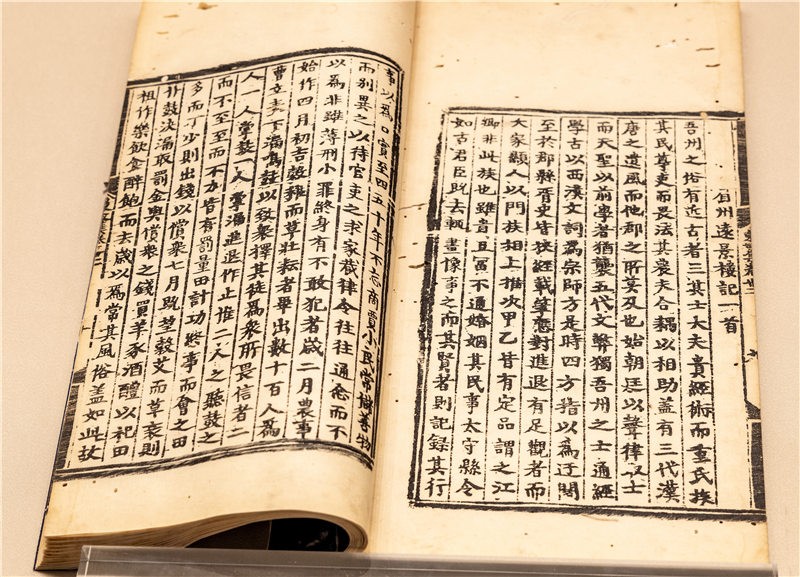 眉州遠景樓記一首
吾州之俗有近古者三其士大夫貴經術而重氏族
其民尊吏而畏法其農夫合耦以相助盖有三代漢
唐之遺風而他郡之所莫及也始朝廷以聲律取士
而天聖以前學者猶襲五代文弊獨吾州之士通經
學古以西漢文詞爲宗師方是時四方指以爲迂闊
至於郡縣胥史皆挟經載筆應對進退有足觀者而
大家顯人以門族相上推次甲乙皆有定品謂之江
鄉非此族也雖貴且冨不通婚姻其民事太守縣令
如古君臣既去輒畫像事之而其賢者則記録其行
事以爲口實至四五十年不忘商賈小民常儲善物
而別異之以待官吏之求家蔵律令往往通念而不
以為非雖薄刑小罪終身有不敢犯者歳二月農事
始作四月初吉榖稚而草壯耘者畢出數十百人爲
曹立表下漏鳴鼓以致衆擇其徒爲衆所畏信者二
人一人掌鼓一人掌漏進退作止惟二人之聽鼓之
而不至至而不力皆有罰量田計功終事而會之田
多而丁少則出錢以償衆七月既望榖艾而草衰則
仆鼓决漏取罰金與償衆之錢買羊豕酒醴以祀田
祖作樂飲食醉飽而去歳以爲常其風俗盖如此故